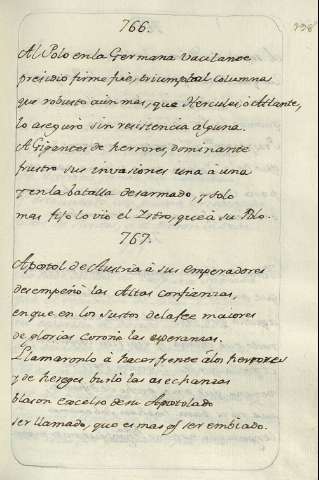 766.
338
Al Polo en la Germana Vacilante
presidio firme fuè, triumphal columna
que robusto aun mas, que Hercules, ò Atlante,
lo asegurò sin resistencia alguna.
A Gigantes de herrores, dominante
frustro sus invasiones una à una
y en la batalla desarmado, y solo
mas fijo lo viò el Istro, que à su Polo.
767.
Apostol de Austria à sus emperadores
desempeñò las Altas Confianzas,
en que en los Sustos de la fee maiores
de glorias Coronò las esperanzas.
Llamaronlo à hacer frente à los herrores
y de hereges burlò las asechanzas
blason excelso de su Apostolado
ser llamado, que es mas q̃ ser embiado.